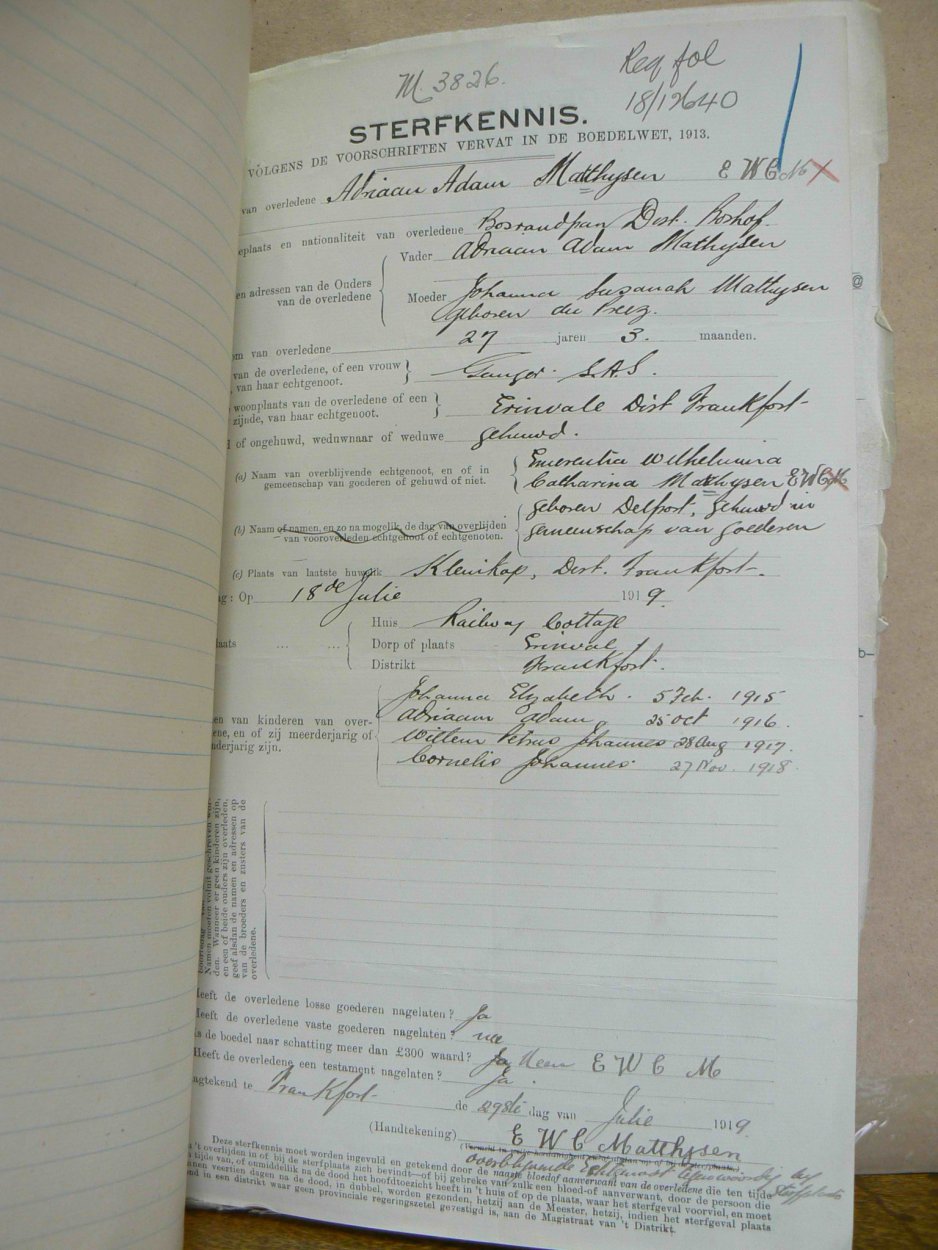 M. 3826.
Req fol
18/12640
STERFKENNIS.
VOLGENS DE VOORSCHRIFTEN VERVAT IN DE BOEDELWET, 1913.
van overledene Adriaan Adam Matthysen E W C M
eplaats en nationaliteit van overledene Bosrandpan Dist. Boshof.
en adressen van de Ouders van de overledene
Vader Adriaan Adam Mathysen
Moeder Johanna Suzanah Mathysen
geboren du Preez.
om van overledene 27 jaren 3. maanden.
van de overledene, of een vrouw
, van haar echtgenoot.
Ganger. S.A.S.
woonplaats van de overledene of een
zijnde, van haar echtgenoot.
Erinvale Dist Frankfort
of ongehuwd, weduwnaar of weduwe gehuwd.
(a) Naam van overblijvende echtgenoot, en of in
gemeenschap van goederen of gehuwd of niet.
Emerentia Wilhelmina
Catharina Matthysen E W C M
geboren Delport, gehuwd in
gemeenschap van Goederen
(b) Naam of namen, en zo na mogelik, de dag van overlijden
van vooroverleden echtgenoot of echtgenoten.
(c) Plaats van laatste huwelik Kleinkop, Dist. Frankfort.
g: Op 18de Julie 1919.
aats ... ...
Huis Railway Cottage
Dorp of plaats Erinval
Distrikt Frankfort.
en van kinderen van over-
ene, en of zij meerderjarig of
nderjarig zijn.
Johanna Elizabeth. 5 Feb. 1915
Adriaan Adam, 25 oct 1916.
Willem Petrus Johannes 28 Aug 1917.
Cornelis Johannes. 27 Nov. 1918.
Namen moeten voluit geschreven wor-
den. Wanneer er geen kinderen zijn,
en een of beide ouders zijn overleden,
geef alsdan de namen en adressen op
van de broeders en zusters van de
overledene.
Heeft de overledene losse goederen nagelaten? Ja
Heeft de overledene vaste goederen nagelaten? nee
Is de boedel naar schatting meer dan £300 waard? Ja Neen E W C M
Heeft de overledene een testament nagelaten? Ja.
agtekend te Frankfort de 29ste dag van Julie 1919.
(Handtekening) E W C Matthysen
overblijvende Echtgenoot tegenwoordig bij
Deze sterfkennis moet worden ingevuld en getekend door de naaste bloed of aanverwant van de overledene die ten tijde
't overlijden in of bij de sterfplaats zich bevindt—of bij gebreke van zulk een bloed-of aanverwant, door de persoon die
tijde van, of onmiddellik na de dood het hoofdtoezicht heeft in 't huis of op de plaats, waar het sterfgeval voorviel, en moet
nen veertien dagen na de dood, in dubbel, worden gezonden, hetzij aan de Meester, hetzij, indien het sterfgeval plaats
nd in een distrikt waar geen provinciale regeringszetel gevestigd is, aan de Magistraat van 't Distrikt.